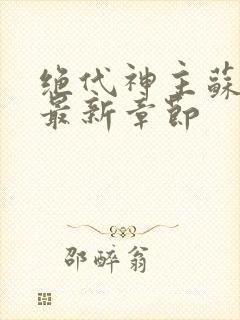 绝代神主蘇
最新章節
邵醉翁